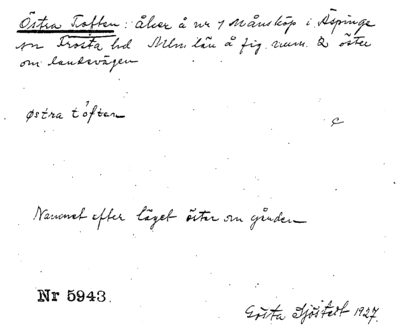 Östra Toften: Åker å nr 1 Månstorp i Äspinge
sn Frosta hd Mlm län å fig. num. 2 öster
om landsvägen
østra tòftan
c
Namnet efter läget öster om gården
Nr 5943.
Gösta Sjöstedt 1927.